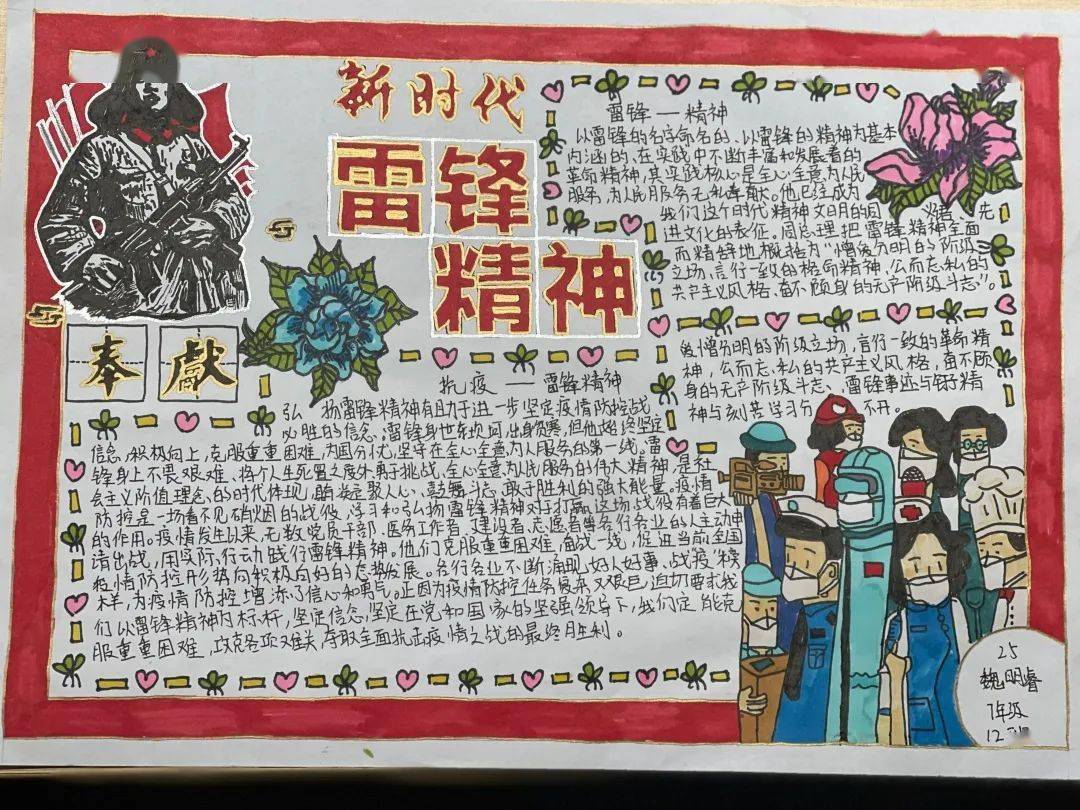 新时代
雷锋
精神
奉獻
雷锋——精神
以雷锋的名字命名的、以雷锋的精神为基本
内涵的、在实践中不断丰富和发展着的
革命精神,其实践核心是全心全意为人民
服务,为人民服务无私奉献。他已经成为
我们这个时代精神文明的同义着、先
进文化的表征。周总理把雷锋精神全面
而精辟地概括为“憎爱分明的阶级
立场、言行一致的格命精神、公而忘私的
共产主义风格、奋不顾身的无产阶级斗志”。
爱憎分明的阶级立场,言行一致的革命精
神,公而忘,私的共产主义风格,奋不顾
身的无产阶级斗志、雷锋事迹与钻精
神与刻苦学习分不开。
抗疫——雷锋精神
弘扬雷锋精神有且力于进一步坚定疫情防控战
必胜的信念。雷锋身世东坝间,出身贫寒,但他始终坚定
信念,积极向上,克服重重困难,为国分忧,坚守在全心全意为人服务的第一线。雷
锋身上不畏艰难、将个人生死置之度外勇于挑战,全心全意为人民服务的伟大精神,是社
会主义价值理念的时代体现,聚人心、鼓舞斗志、敢于胜利的强大能量。疫情
防控是一场看不见硝烟的战役,学习和弘扬雷锋精神对打赢这场战役有着巨大
的作用。疫情发生以来,无数党员干部、医务工作者、建设者、志愿者等各行各业的人主动申
请出战,用实际行动践行雷锋精神。他们克服重重困难,奋战一线,促进当前全国
疫情防控形势向积极向好的态势发展。各行各业不断涌现好人好事、战疫“榜
样,为疫情防控增添了信心和勇气。正因为疫情防控任务复杂又艰巨,迫切要求我
们以雷锋精神为标杆,坚定信念,坚定在党和国家的坚强领导下,我们定能克
服重重困难,攻克各项难关,夺取全面抗击疫情之战的最终胜利。
25
魏明睿
7年级
12班